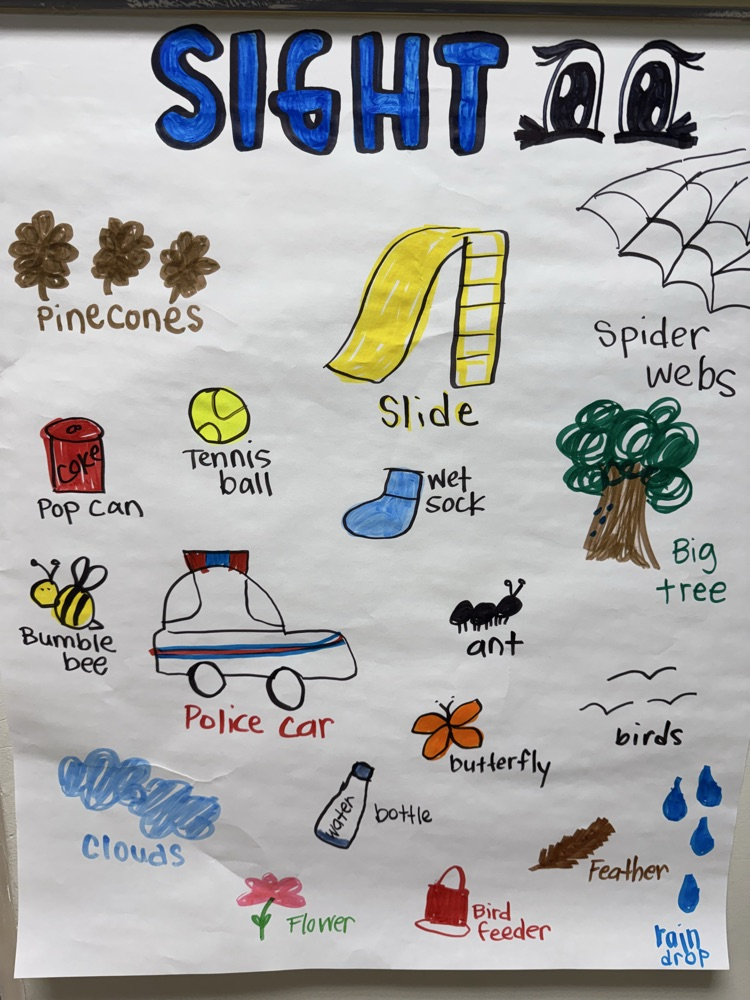 SIGHT
Pinecones
Slide
Spider
webs
Coke
Pop can
Tennis
ball
wet
sock
Big
tree
Bumble
bee
Police car
ant
butterfly
birds
Clouds
water
bottle
Feather
Flower
Bird
feeder
rain
drop